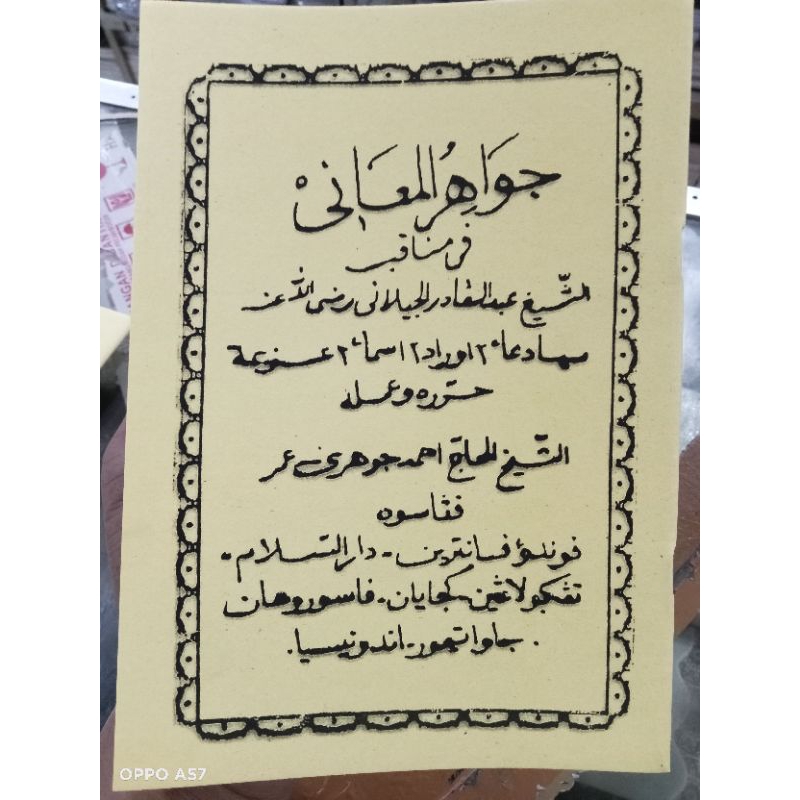 جَوَاهِرُ المَعَانِيْ
في مناقب
الشّيخ عبد القادر الجيلاني رضي الله عنه
سها دعاء٢ اوراد٢ اسماء٢ عزيمة
حرّره وعمله
الشّيخ الحاجّ احمد جوهري عمر
ڤڠاسوه
فوندوء فسانترين - دار السّلام -
تڠكولاڠين - كجايان - فاسوروهان
. جاوا تيمور - اندونيسيا .
OPPO A57